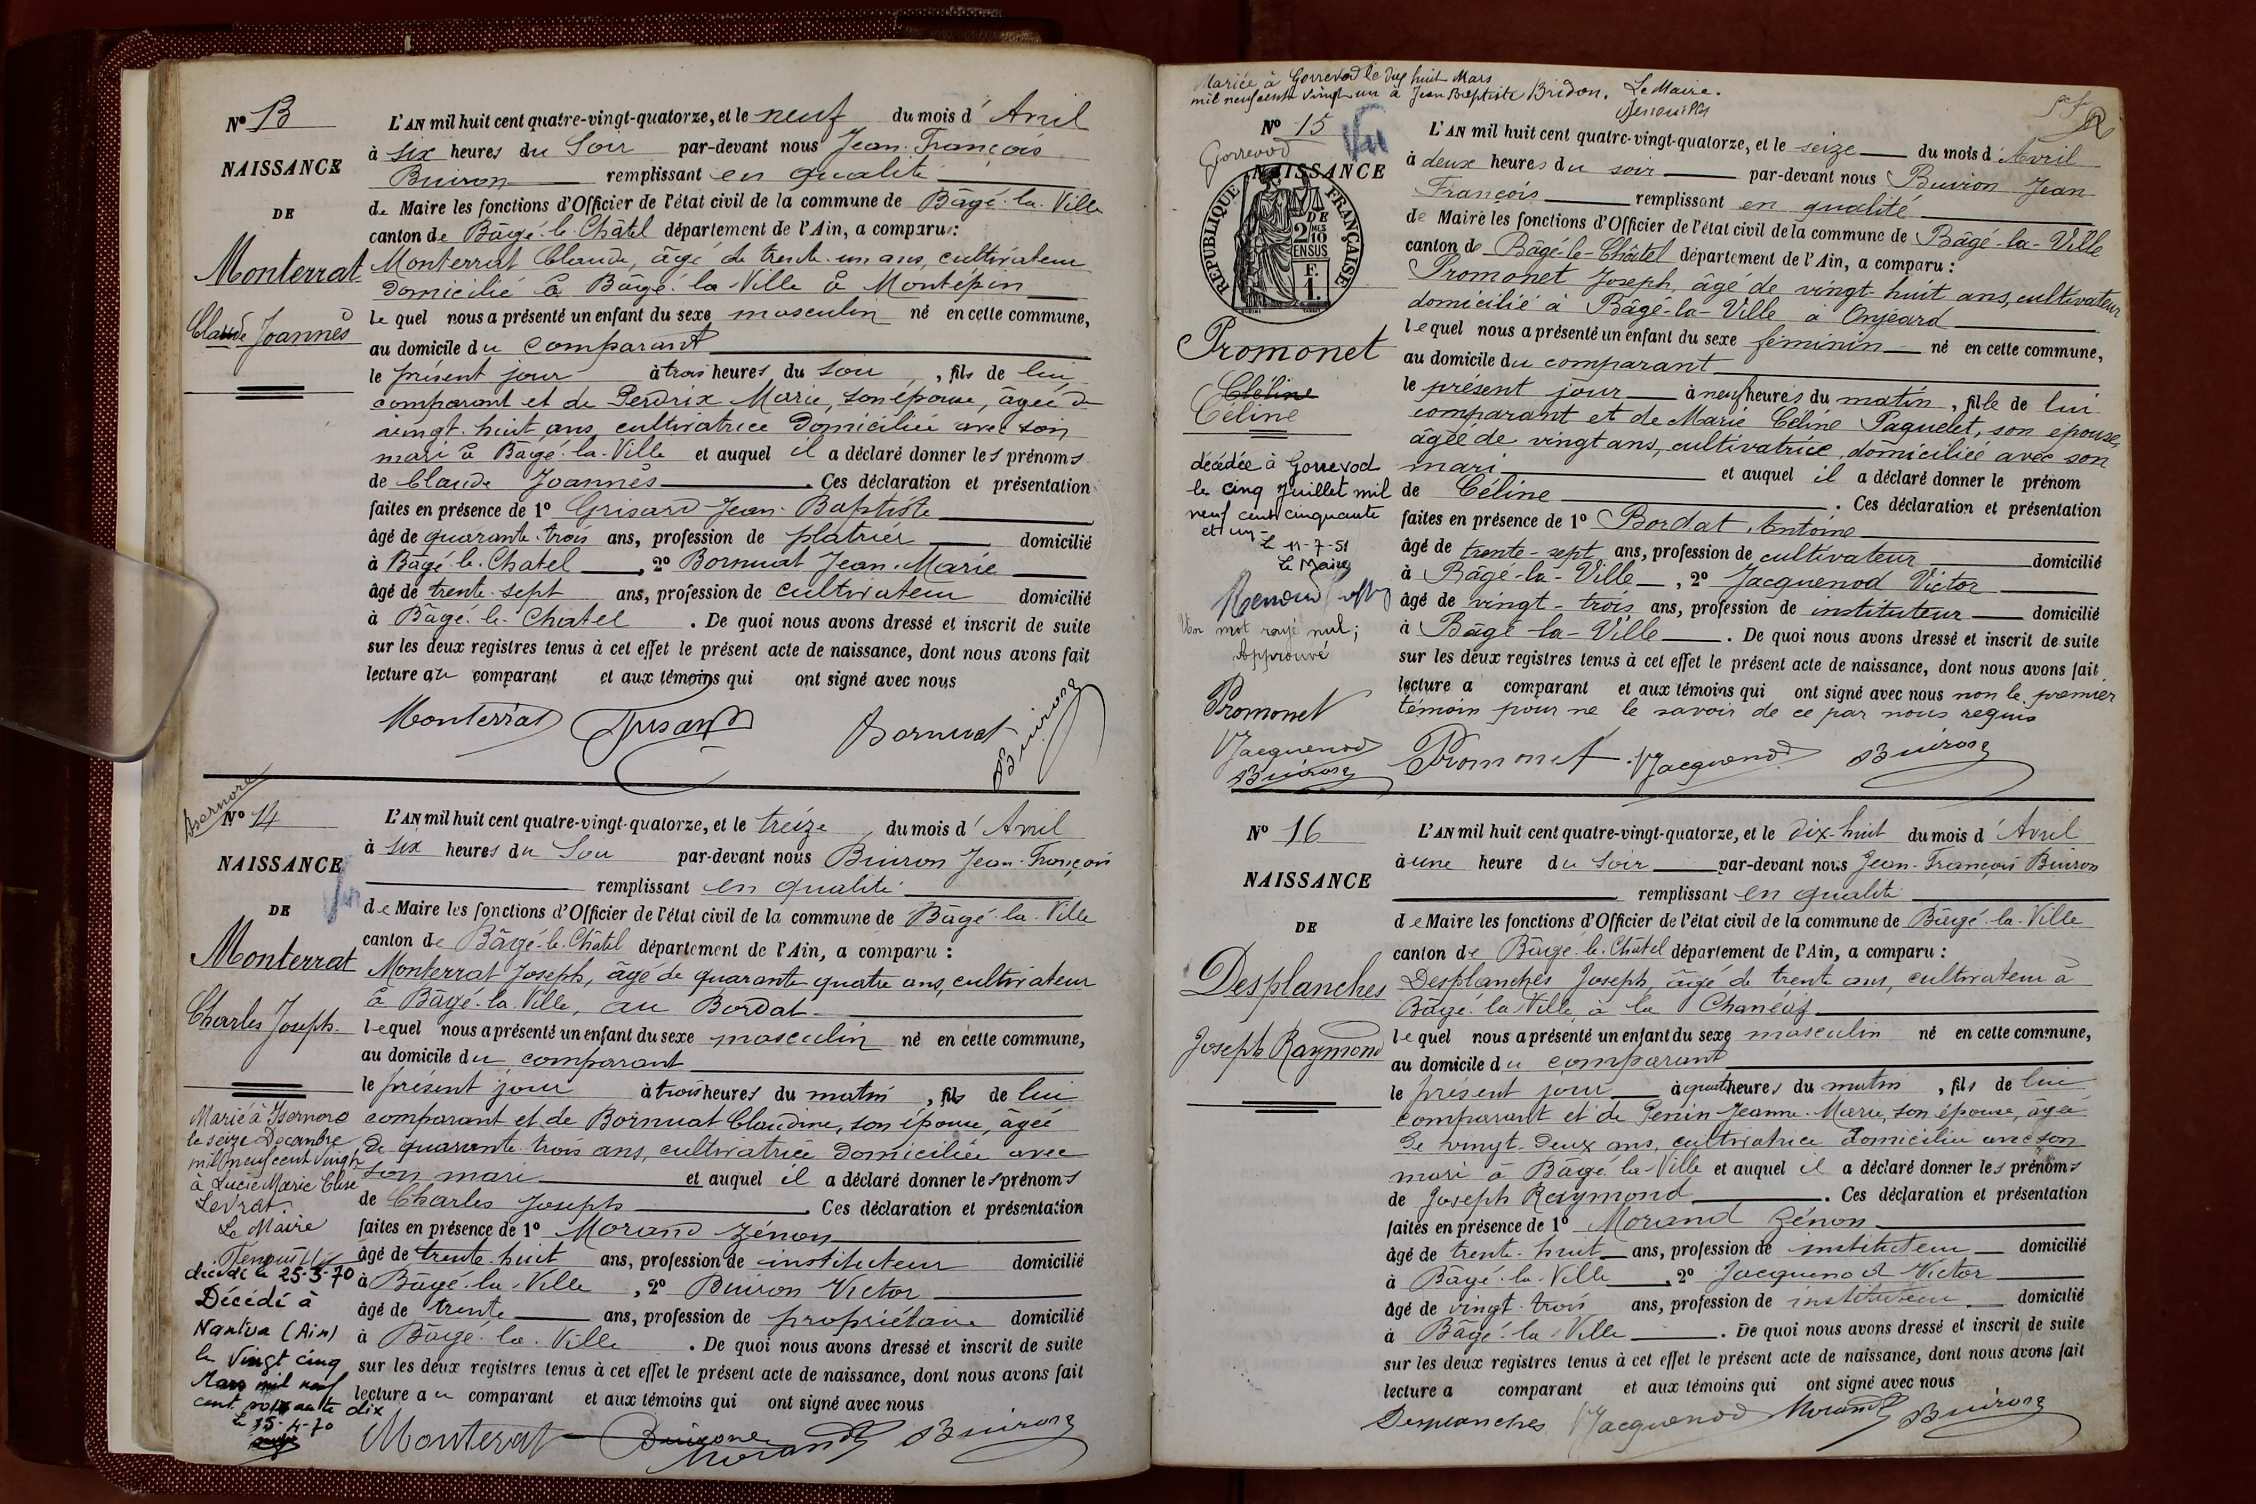 Nº 13
NAISSANCE
DE
Monterrat
Claude Joannès
L'AN mil huit cent quatre-vingt-quatorze, et le neuf du mois d'Avril
à six heures du Soir par-devant nous Jean-François
Buiron remplissant en qualité
de Maire les fonctions d'Officier de l'état civil de la commune de Bâgé-la-Ville
canton de Bâgé-le-Châtel département de l'Ain, a comparu :
Monterrat Claude, âgé de trente-un ans, cultivateur
domicilié à Bâgé-la-Ville à Montépin
lequel nous a présenté un enfant du sexe masculin né en cette commune,
au domicile du comparant
le présent jour à trois heures du soir, fils de lui
comparant et de Perdrix Marie, son épouse, âgée de
vingt-huit ans, cultivatrice domiciliée avec son
mari à Bâgé-la-Ville et auquel il a déclaré donner les prénoms
de Claude Joannès. Ces déclaration et présentation
faites en présence de 1º Grisard Jean-Baptiste
âgé de quarante-trois ans, profession de platrier domicilié
à Bâgé-le-Chatel, 2º Bornuat Jean-Marie
âgé de trente-sept ans, profession de cultivateur domicilié
à Bâgé-le-Chatel. De quoi nous avons dressé et inscrit de suite
sur les deux registres tenus à cet effet le présent acte de naissance, dont nous avons fait
lecture au comparant et aux témoins qui ont signé avec nous
Monterrat Grisard Bornuat Buiron
Isernore
Nº 14
NAISSANCE
Vu
DE
Monterrat
Charles Joseph
Marié à Isernore
le seize Décembre
mil neuf cent vingt
à Lucie Marie Elise
Levrat.
Le Maire
décédé le 25-3-70
Décédé à
Nantua (Ain)
le Vingt cinq
Mars mil neuf
cent soixante dix
L'AN mil huit cent quatre-vingt-quatorze, et le treize du mois d'Avril
à six heures du Soir par-devant nous Buiron Jean-François
remplissant en qualité
de Maire les fonctions d'Officier de l'état civil de la commune de Bâgé-la-Ville
canton de Bâgé-le-Châtel département de l'Ain, a comparu :
Monterrat Joseph, âgé de quarante quatre ans, cultivateur
à Bâgé-la-Ville, au Bordat
lequel nous a présenté un enfant du sexe masculin né en cette commune,
au domicile du comparant
le présent jour à trois heures du matin, fils de lui
comparant et de Bornuat Claudine, son épouse, âgée
de quarante-trois ans, cultivatrice domiciliée avec
son mari et auquel il a déclaré donner les prénoms
de Charles Joseph. Ces déclaration et présentation
faites en présence de 1º Morand Zénon
âgé de trente-huit ans, profession de instituteur domicilié
à Bâgé-la-Ville, 2º Buiron Victor
âgé de trente ans, profession de propriétaire domicilié
à Bâgé-la-Ville. De quoi nous avons dressé et inscrit de suite
sur les deux registres tenus à cet effet le présent acte de naissance, dont nous avons fait
lecture au comparant et aux témoins qui ont signé avec nous
Monterat Buiron Morand Buiron
Mariée à Gorrevod le dix huit Mars
mil neuf cent vingt un à Jean Baptiste Bridon. Le Maire.
Nº 15
Vu
Gorrevod
NAISSANCE
RÉPUBLIQUE FRANÇAISE
DE
2/10 MES
EN SUS
F.
1.
Promonet
Cléline
Céline
décédée à Gorrevod
le cinq Juillet mil
neuf cent cinquante
et un
le 11-7-51
Le Maire
Un mot rayé nul;
Approuvé
Promonet
Jacquenod
Buiron
L'AN mil huit cent quatre-vingt-quatorze, et le seize du mois d'Avril
à deux heures du soir par-devant nous Buiron Jean
François remplissant en qualité
de Maire les fonctions d'Officier de l'état civil de la commune de Bâgé-la-Ville
canton de Bâgé-le-Châtel département de l'Ain, a comparu :
Promonet Joseph, âgé de vingt-huit ans, cultivateur
domicilié à Bâgé-la-Ville à Onjeard
lequel nous a présenté un enfant du sexe féminin né en cette commune,
au domicile du comparant
le présent jour à neuf heures du matin, fille de lui
comparant et de Marie Céline Paquelet, son épouse,
âgée de vingt ans, cultivatrice, domiciliée avec son
mari et auquel il a déclaré donner le prénom
de Céline. Ces déclaration et présentation
faites en présence de 1º Bordat Antoine
âgé de trente-sept ans, profession de cultivateur domicilié
à Bâgé-la-Ville, 2º Jacquenod Victor
âgé de vingt-trois ans, profession de instituteur domicilié
à Bâgé-la-Ville. De quoi nous avons dressé et inscrit de suite
sur les deux registres tenus à cet effet le présent acte de naissance, dont nous avons fait
lecture a comparant et aux témoins qui ont signé avec nous non le premier
témoin pour ne le savoir de ce par nous requis
Promonet Jacquenod Buiron
Nº 16
NAISSANCE
DE
Desplanches
Joseph Raymond
L'AN mil huit cent quatre-vingt-quatorze, et le dix-huit du mois d'Avril
à une heure du Soir par-devant nous Jean-François Buiron
remplissant en qualité
de Maire les fonctions d'Officier de l'état civil de la commune de Bâgé-la-Ville
canton de Bâgé-le-Châtel département de l'Ain, a comparu :
Desplanches Joseph, âgé de trente ans, cultivateur à
Bâgé-la-Ville à la Chanéaz
lequel nous a présenté un enfant du sexe masculin né en cette commune,
au domicile du comparant
le présent jour à quatre heures du matin, fils de lui
comparant et de Penin Jeanne-Marie, son épouse, âgée
de vingt-deux ans, cultivatrice domiciliée avec son
mari à Bâgé-la-Ville et auquel il a déclaré donner les prénoms
de Joseph Raymond. Ces déclaration et présentation
faites en présence de 1º Morand Zénon
âgé de trente-huit ans, profession de instituteur domicilié
à Bâgé-la-Ville, 2º Jacquenod Victor
âgé de vingt-trois ans, profession de instituteur domicilié
à Bâgé-la-Ville. De quoi nous avons dressé et inscrit de suite
sur les deux registres tenus à cet effet le présent acte de naissance, dont nous avons fait
lecture a comparant et aux témoins qui ont signé avec nous
Desplanches Jacquenod Morand Buiron